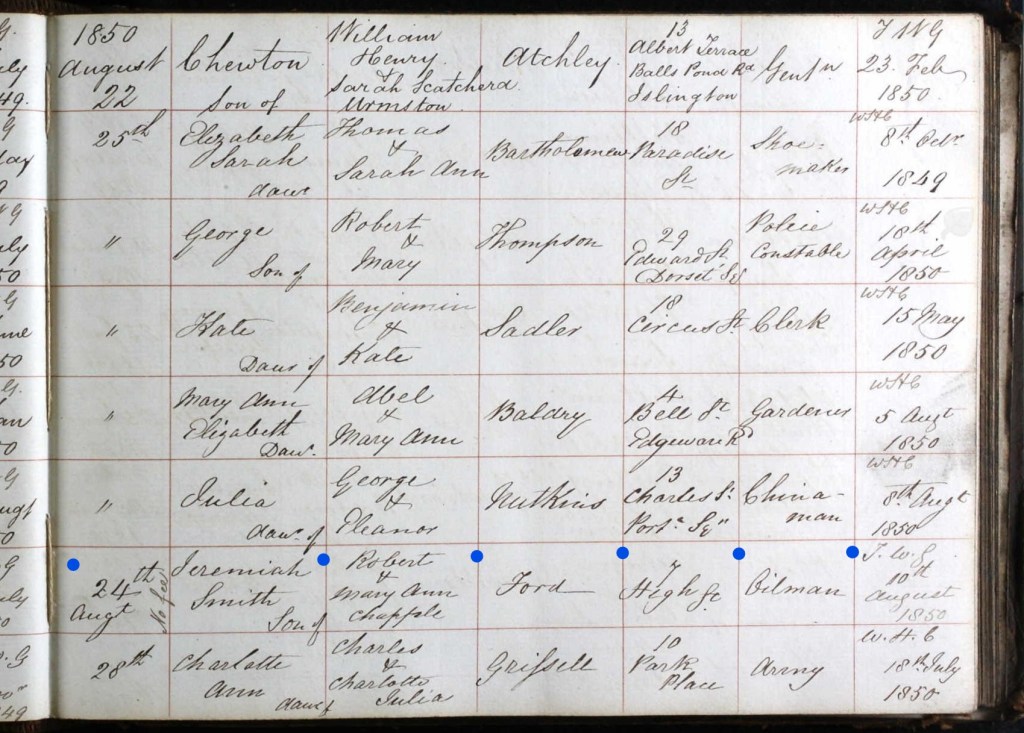 1850
August
22
Chewton
Son of
William
Henry
&
Sarah Scatcherd
Urmston
Atchley
13
Albert Terrace
Balls Pond Rd
Islington
Gentn
J W G
23. Feb
1850
25th
Elizabeth
Sarah
daur
Thomas
&
Sarah Ann
Bartholomew
18
Paradise
St
Shoe-
maker
W H C
8th Octr
1849
"
George
Son of
Robert
&
Mary
Thompson
29
Edward St
Dorset Sq
Police
Constable
W H C
18th
April
1850
"
Kate
Daur of
Benjamin
&
Kate
Sadler
18
Circus St
Clerk
W H C
15 May
1850
"
Mary Ann
Elizabeth
Daur.
Abel
&
Mary Ann
Baldry
4
Bell St
Edgeware Rd
Gardener
W H C
5 Augt
1850
"
Julia
daur of
George
&
Eleanor
Nutkins
13
Charles St
Portn Sqr
China-
man
W H C
8th Augt
1850
24th
Augt
No fee
Jeremiah
Smith
Son of
Robert
&
Mary Ann
Chapple
Ford
7
High St
Oilman
J. W. G
10th
August
1850
28th
Charlotte
Ann
daur of
Charles
&
Charlotte
Julia
Grissell
10
Park
Place
Army
W. H. C
18th July
1850